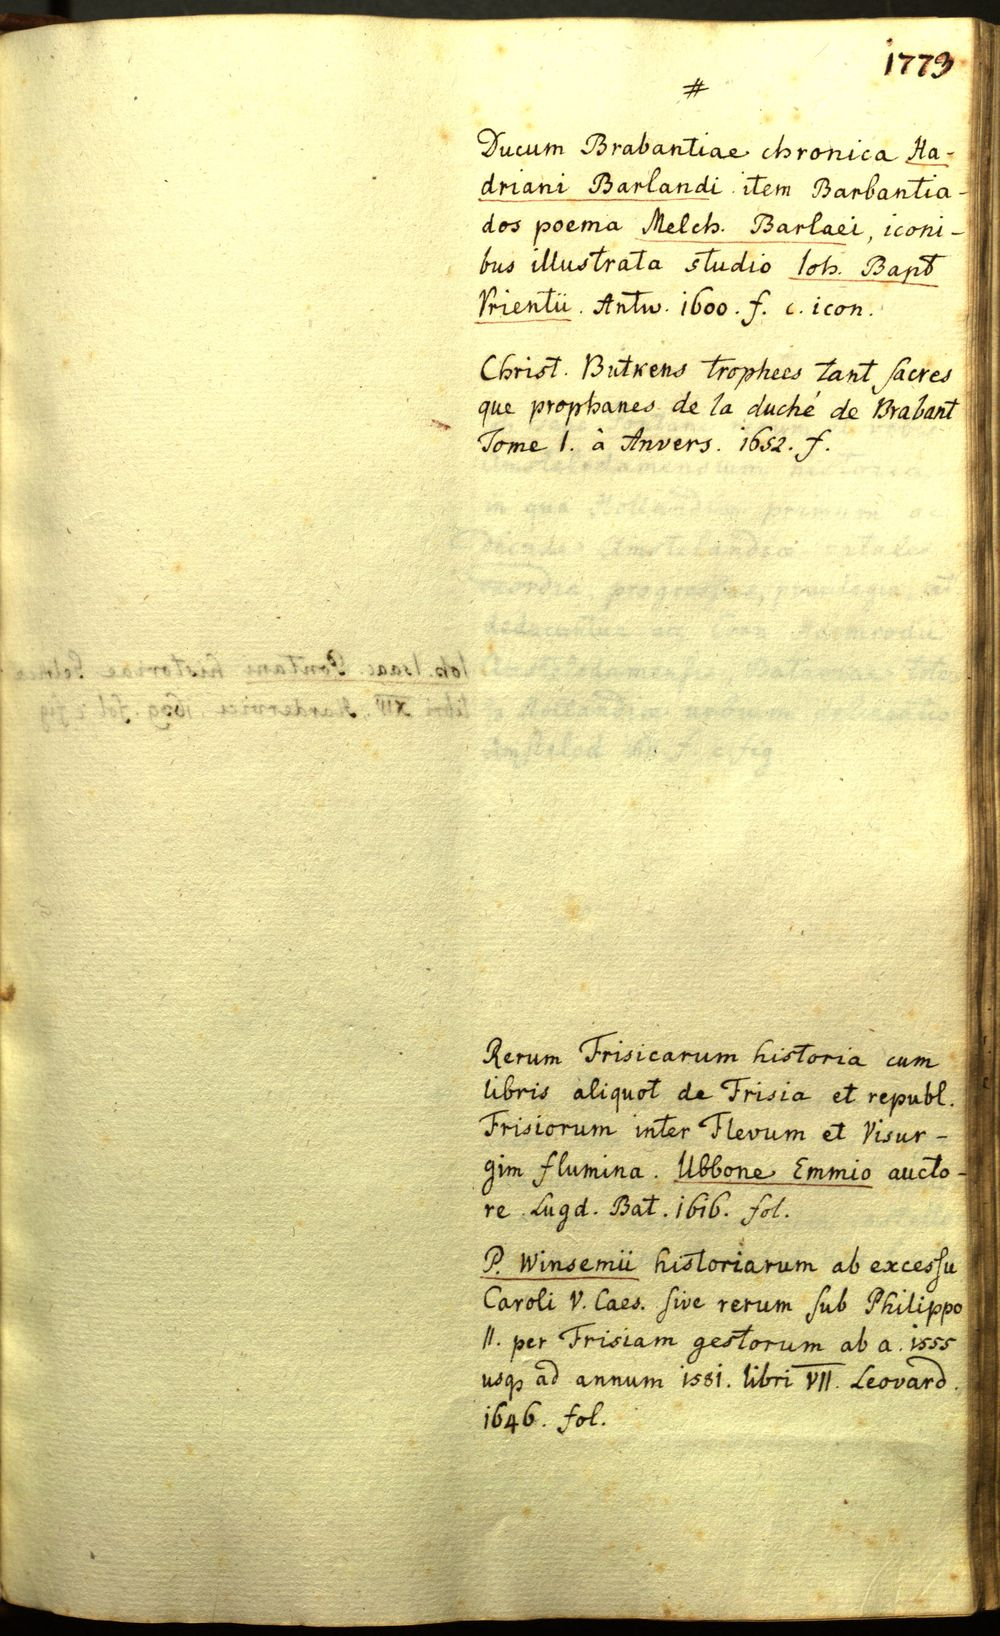 1773
#
Ducum Brabantiae chronica Ha-
driani Barlandi item Barbantia-
dos poema Melch. Barlaei, iconi-
bus illustrata studio Ioh. Bapt
Vrientii. Antw. 1600. f. c. icon.
Christ. Butkens trophees tant sacres
que prophanes de la duché de Brabant
Tome I. à Anvers. 1652. f.
Rerum Frisicarum historia cum
libris aliquot de Frisia et republ.
Frisiorum inter Flevum et Visur-
gim flumina. Ubbone Emmio aucto-
re Lugd. Bat. 1616. fol.
P. Winsemii historiarum ab excessu
Caroli V. Caes. sive rerum sub Philippo
II. per Frisiam gestorum ab a. 1555
usq ad annum 1581. libri VII. Leovard.
1646. fol.